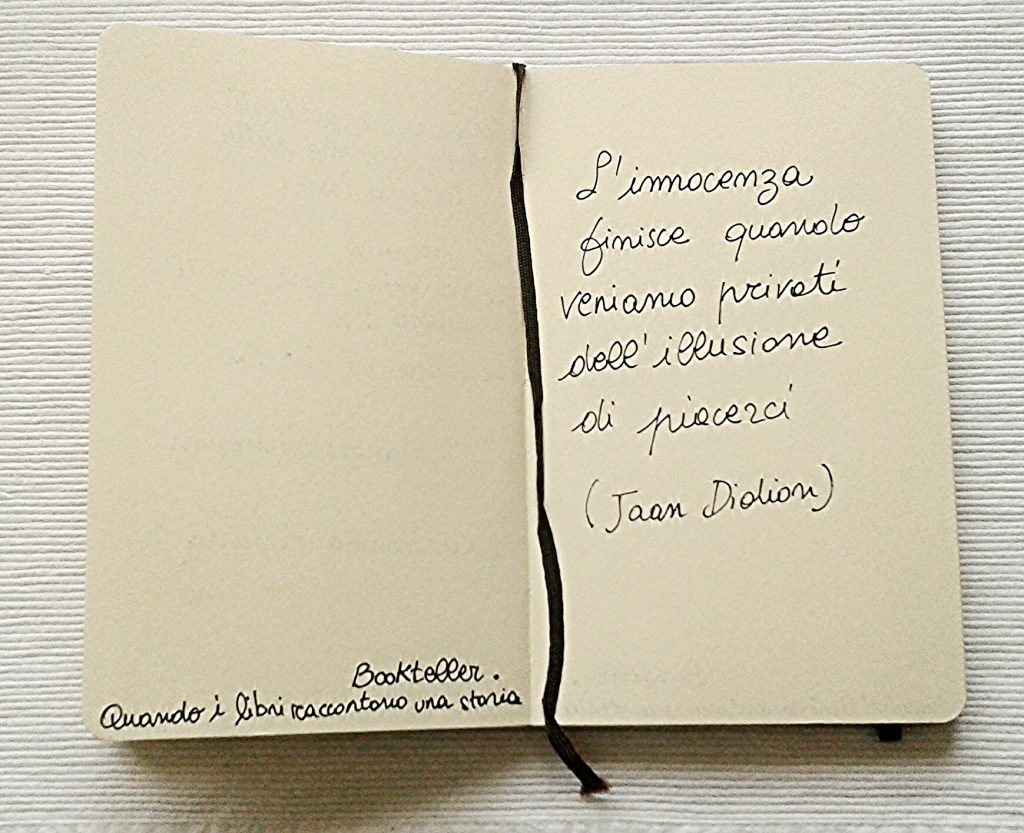 Bookteller.
Quando i libri raccontano una storia
L'innocenza
finisce quando
veniamo privati
dell'illusione
di piacerci
(Joan Didion)